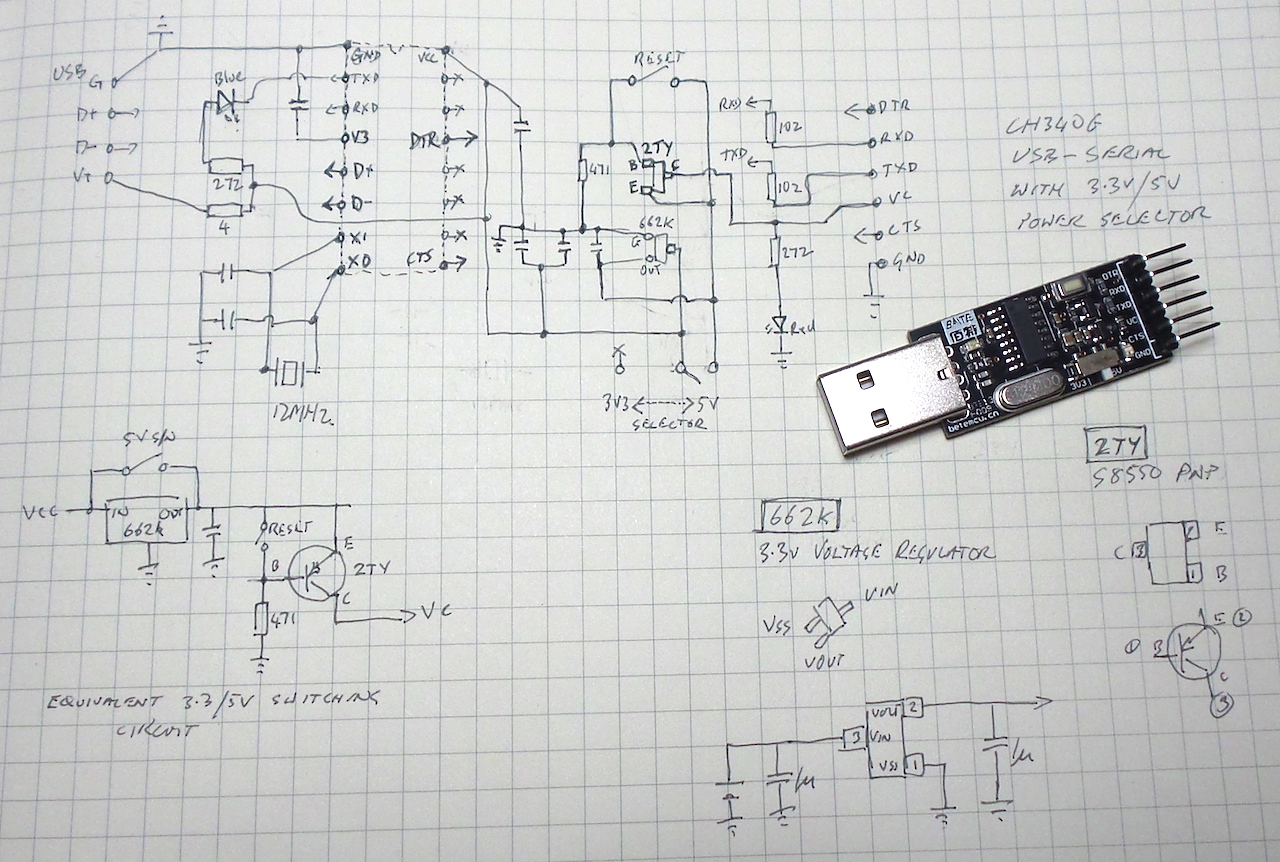 USB
G
D+
D-
V+
Blue
272
4
GND
TXD
RXD
V3
D+
D-
XI
XO
VCC
DTR
CTS
12MHZ
RESET
471
2TY
B
C
E
662K
G
OUT
3V3 <----> 5V
SELECTOR
RXD
102
TXD
102
272
RXD
DTR
RXD
TXD
VC
CTS
GND
CH340G
USB-SERIAL
WITH 3.3V/5V
POWER SELECTOR
BAITE
DTR
RXD
TXD
VCC
CTS
GND
3V3
5V
betemcu.cn
5V S/W
VCC
IN OUT
662K
RESET
B
E
2TY
C
471
VC
EQUIVALENT 3.3/5V SWITCHING
CIRCUIT
662K
3.3V VOLTAGE REGULATOR
VIN
VSS
VOUT
VOUT 2
3 VIN
VSS 1
1u
1u
2TY
S8550 PNP
C 3
2 E
1 B
1 B
E 2
C
3